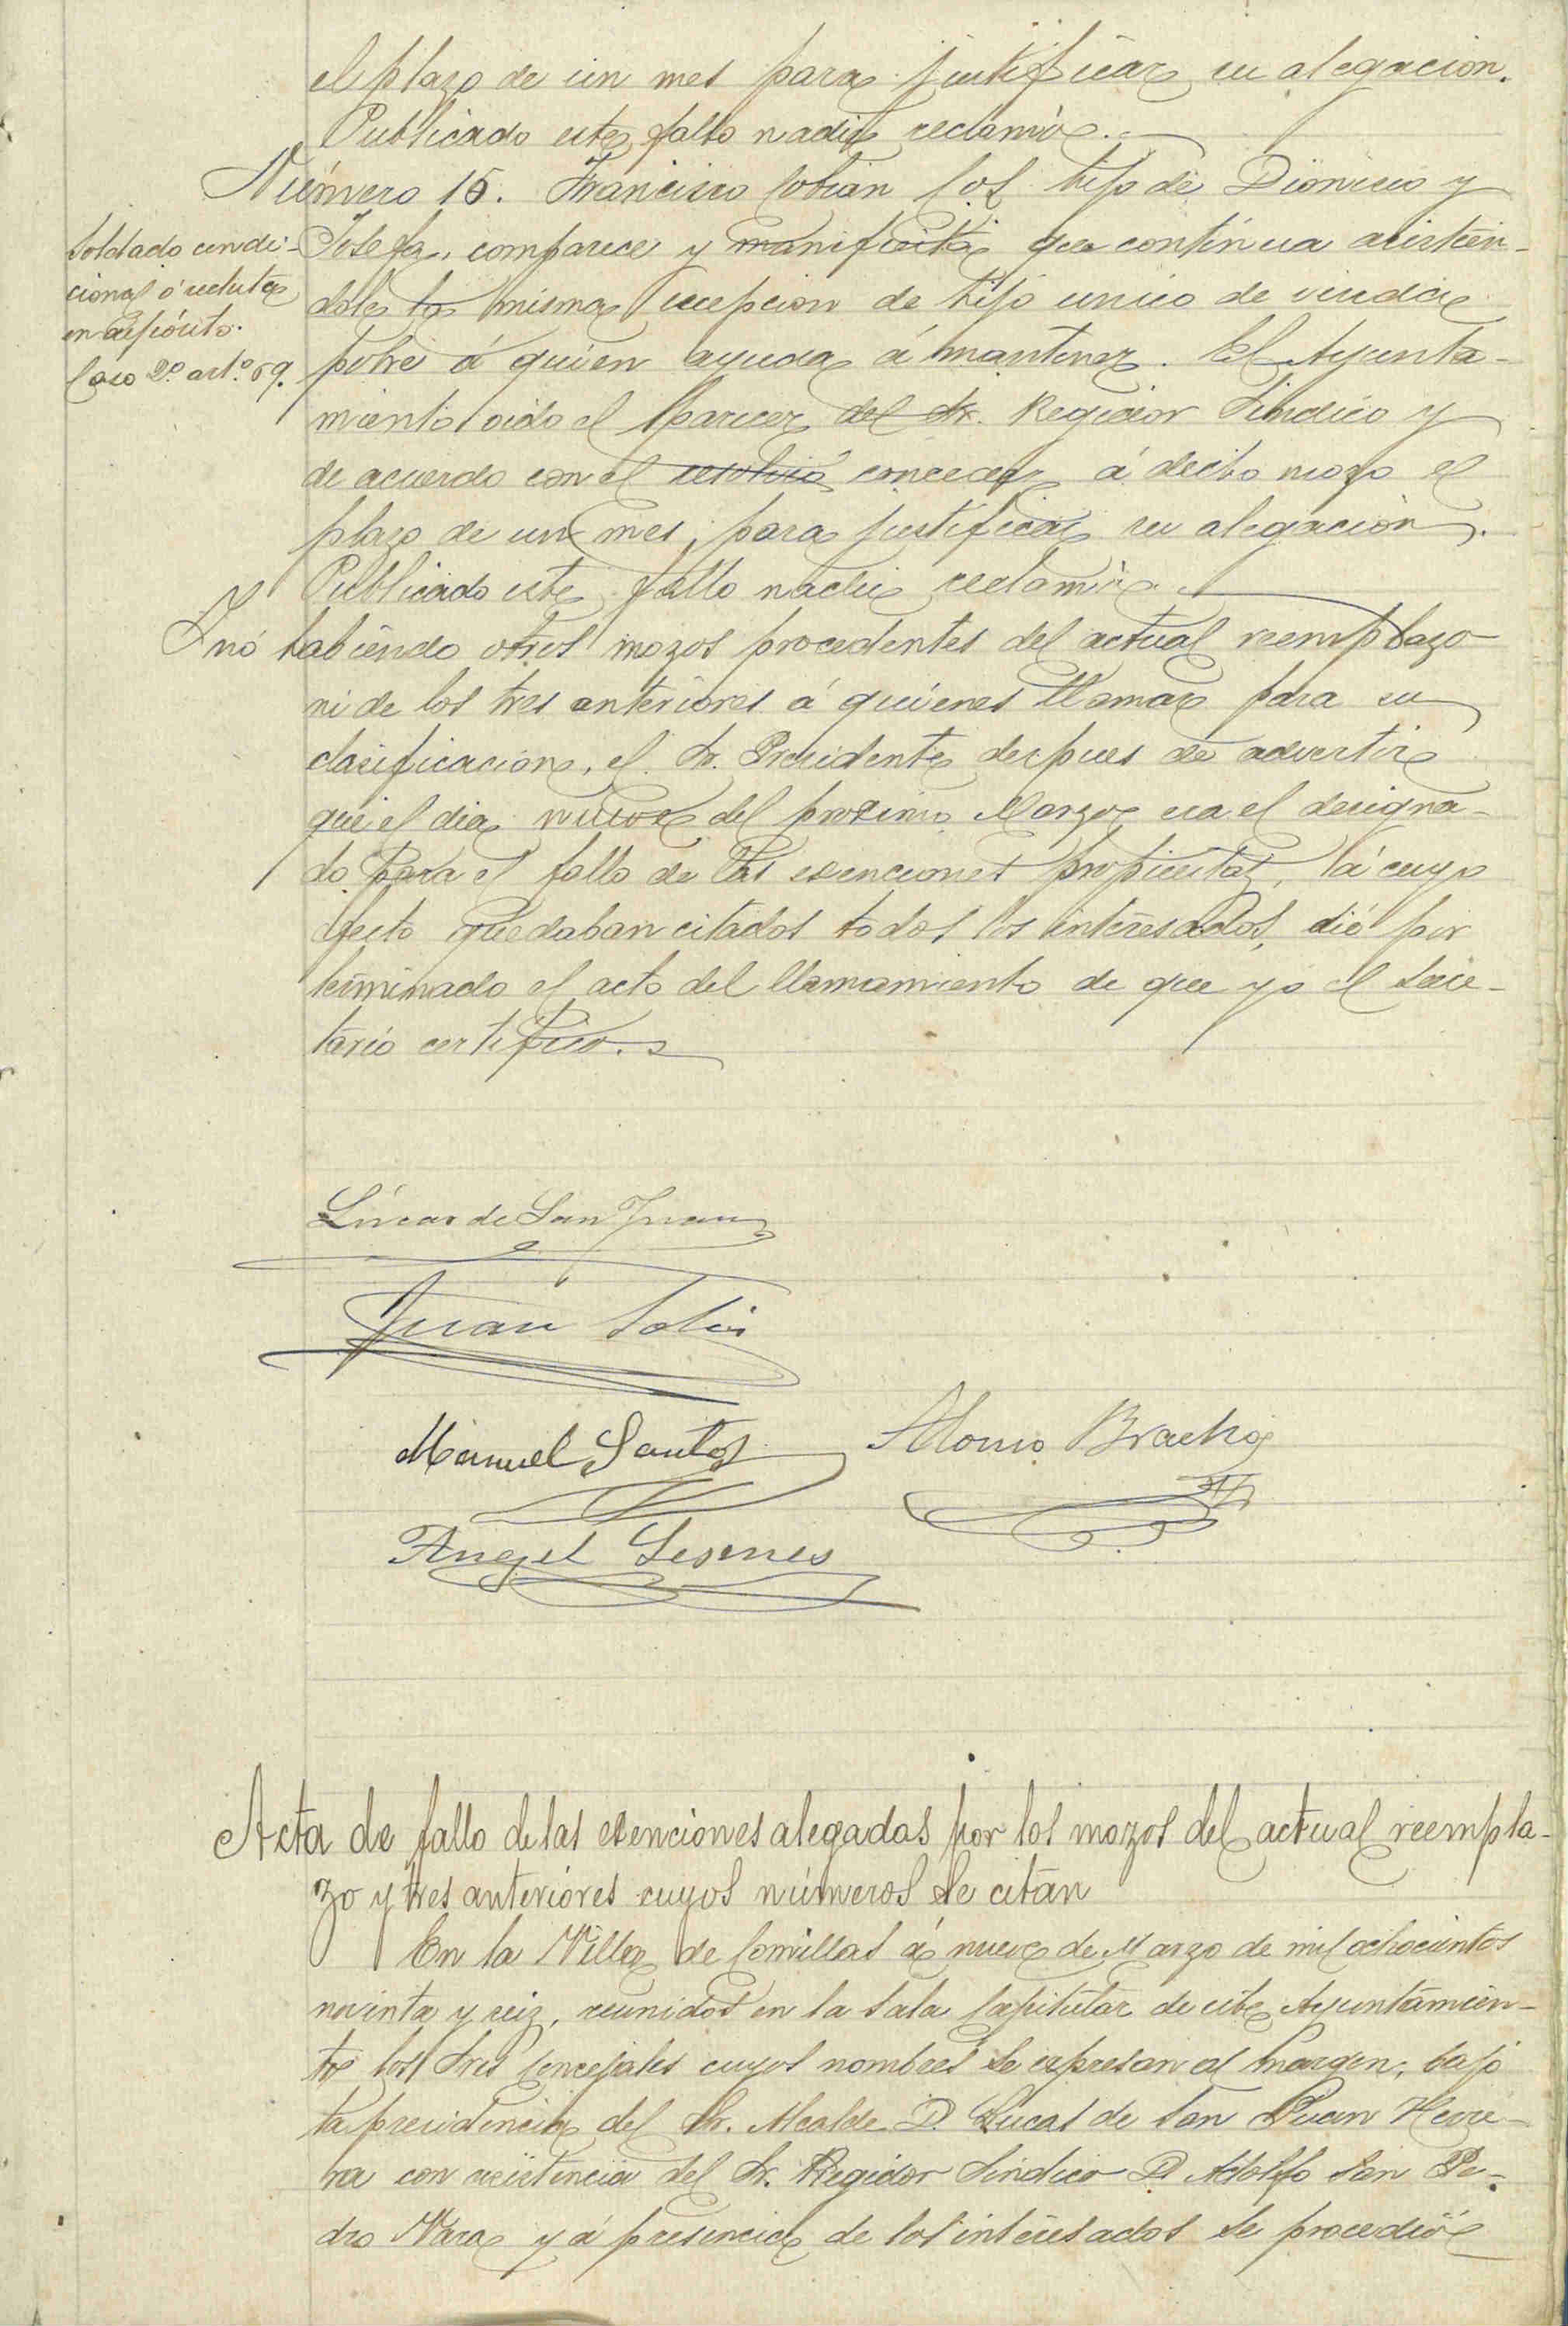 el plazo de un mes para justificar su alegacion.
Publicado este fallo nadie reclamó.
Número 15. Francisco Cobian Cos hijo de Dionisio y
Soldado condi-
cional ó recluta
en depósito.
Caso 2º art.º 69.
Josefa, comparece y manifiesta que continua asistien-
dole la misma excepcion de hijo unico de viuda
pobre á quien ayuda á mantener. El Ayunta-
miento oido el parecer del Sr. Regidor Sindico y
de acuerdo con el resolvió conceder á dicho mozo el
plazo de un mes, para justificar su alegación.
Publicado este fallo nadie reclamó.
Y no habiendo otros mozos procedentes del actual reemplazo
ni de los tres anteriores á quienes llamar para su
clasificacion, el Sr. Presidente despues de advertir
que el dia nueve del proximo Marzo era el designa-
do para el fallo de las exenciones propuestas, á cuyo
efecto quedaban citados todos los interesados, dió por
terminado el acto del llamamiento de que yo el Secre-
tario certifico.
Lúcas de San Juan
Juan
Manuel Santos Alonso Bracho
Angel
Acta de fallo de las exenciones alegadas por los mozos del actual reempla-
zo y tres anteriores cuyos números se citan
En la Villa de Comillas á nueve de Marzo de mil ochocientos
noventa y seis, reunidos en la Sala Capitular de este Ayuntamien-
to los Sres Concejales cuyos nombres se expresan al margen, bajo
la presidencia del Sr. Alcalde D. Lucas de San Juan Herre-
ra con asistencia del Sr. Regidor Sindico D. Adolfo San Pe-
dro Vara y á presencia de los interesados se procedió